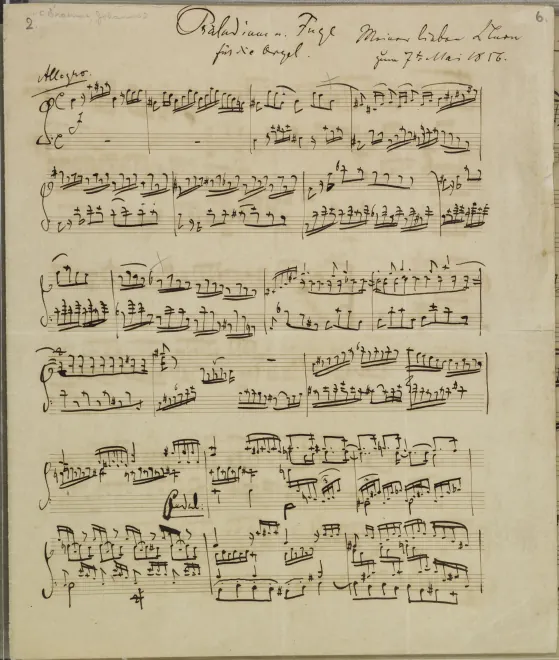 2 Brahms Johannes 6.
Praeludium u. Fuge
für die Orgel.
Meiner lieben Clara
zum 7t Mai 1856.
Allegro.
f
Pedal.